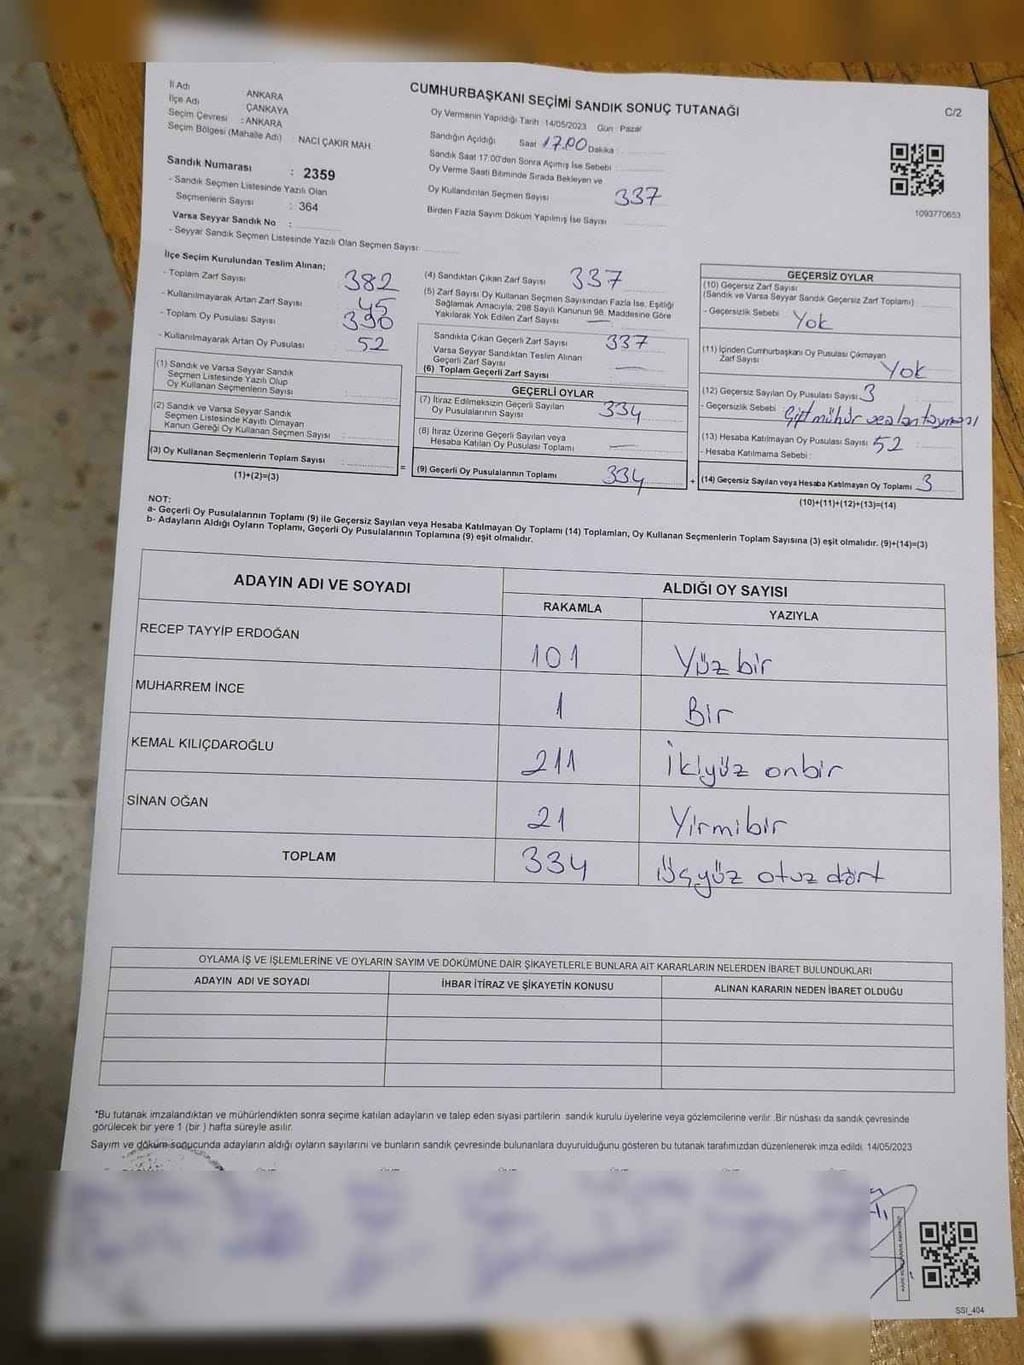 CUMHURBAŞKANI SEÇİMİ SANDIK SONUÇ TUTANAĞI
C/2
İl Adı ANKARA
İlçe Adı ÇANKAYA
Seçim Çevresi : ANKARA
Seçim Bölgesi (Mahalle Adı) NACİ ÇAKIR MAH.
Sandık Numarası : 2359
- Sandık Seçmen Listesinde Yazılı Olan
Seçmenlerin Sayısı : 364
Varsa Seyyar Sandık No :
- Seyyar Sandık Seçmen Listesinde Yazılı Olan Seçmen Sayısı:
Oy Vermenin Yapıldığı Tarih : 14/05/2023 Gün : Pazar
Sandığın Açıldığı Saat 17.00 Dakika :
Sandık Saat 17:00'den Sonra Açımış İse Sebebi :
Oy Verme Saati Bitiminde Sırada Bekleyen ve
Oy Kullandırılan Seçmen Sayısı 337
Birden Fazla Sayım Döküm Yapılmış İse Sayısı
1093770653
İlçe Seçim Kurulundan Teslim Alınan;
- Toplam Zarf Sayısı 382
- Kullanılmayarak Artan Zarf Sayısı 45
- Toplam Oy Pusulası Sayısı 390
- Kullanılmayarak Artan Oy Pusulası 52
(1) Sandık ve Varsa Seyyar Sandık
Seçmen Listesinde Yazılı Olup
Oy Kullanan Seçmenlerin Sayısı :
(2) Sandık ve Varsa Seyyar Sandık
Seçmen Listesinde Kayıtlı Olmayan
Kanun Gereği Oy Kullanan Seçmen Sayısı
(3) Oy Kullanan Seçmenlerin Toplam Sayısı :
(1)+(2)=(3)
=
(4) Sandıktan Çıkan Zarf Sayısı 337
(5) Zarf Sayısı Oy Kullanan Seçmen Sayısından Fazla İse, Eşitliği
Sağlamak Amacıyla, 298 Sayılı Kanunun 98. Maddesine Göre
Yakılarak Yok Edilen Zarf Sayısı : —
Sandıkta Çıkan Geçerli Zarf Sayısı 337
Varsa Seyyar Sandıktan Teslim Alınan
Geçerli Zarf Sayısı —
(6) Toplam Geçerli Zarf Sayısı
GEÇERLİ OYLAR
(7) İtiraz Edilmeksizin Geçerli Sayılan
Oy Pusulalarının Sayısı 334
(8) İtiraz Üzerine Geçerli Sayılan veya
Hesaba Katılan Oy Pusulası Toplamı —
(9) Geçerli Oy Pusulalarının Toplamı 334
+
GEÇERSİZ OYLAR
(10) Geçersiz Zarf Sayısı
(Sandık ve Varsa Seyyar Sandık Geçersiz Zarf Toplamı)
- Geçersizlik Sebebi Yok
(11) İçinden Cumhurbaşkanı Oy Pusulası Çıkmayan
Zarf Sayısı Yok
(12) Geçersiz Sayılan Oy Pusulası Sayısı 3
- Geçersizlik Sebebi : Çift mühür ve alan taşması
(13) Hesaba Katılmayan Oy Pusulası Sayısı 52
- Hesaba Katılmama Sebebi :
(14) Geçersiz Sayılan veya Hesaba Katılmayan Oy Toplamı 3
(10)+(11)+(12)+(13)=(14)
NOT:
a- Geçerli Oy Pusulalarının Toplamı (9) ile Geçersiz Sayılan veya Hesaba Katılmayan Oy Toplamı (14) Toplamları, Oy Kullanan Seçmenlerin Toplam Sayısına (3) eşit olmalıdır. (9)+(14)=(3)
b- Adayların Aldığı Oyların Toplamı, Geçerli Oy Pusulalarının Toplamına (9) eşit olmalıdır.
ADAYIN ADI VE SOYADI ALDIĞI OY SAYISI
RAKAMLA YAZIYLA
RECEP TAYYİP ERDOĞAN 101 Yüz bir
MUHARREM İNCE 1 Bir
KEMAL KILIÇDAROĞLU 211 İkiyüz onbir
SİNAN OĞAN 21 Yirmibir
TOPLAM 334 Üçyüz otuz dört
OYLAMA İŞ VE İŞLEMLERİNE VE OYLARIN SAYIM VE DÖKÜMÜNE DAİR ŞİKAYETLERLE BUNLARA AİT KARARLARIN NELERDEN İBARET BULUNDUKLARI
ADAYIN ADI VE SOYADI İHBAR İTİRAZ VE ŞİKAYETİN KONUSU ALINAN KARARIN NEDEN İBARET OLDUĞU
*Bu tutanak imzalandıktan ve mühürlendikten sonra seçime katılan adayların ve talep eden siyasi partilerin sandık kurulu üyelerine veya gözlemcilerine verilir. Bir nüshası da sandık çevresinde
görülecek bir yere 1 (bir ) hafta süreyle asılır.
Sayım ve döküm sonucunda adayların aldığı oyların sayılarını ve bunların sandık çevresinde bulunanlara duyurulduğunu gösteren bu tutanak tarafımızdan düzenlenerek imza edildi. 14/05/2023
SSI_404